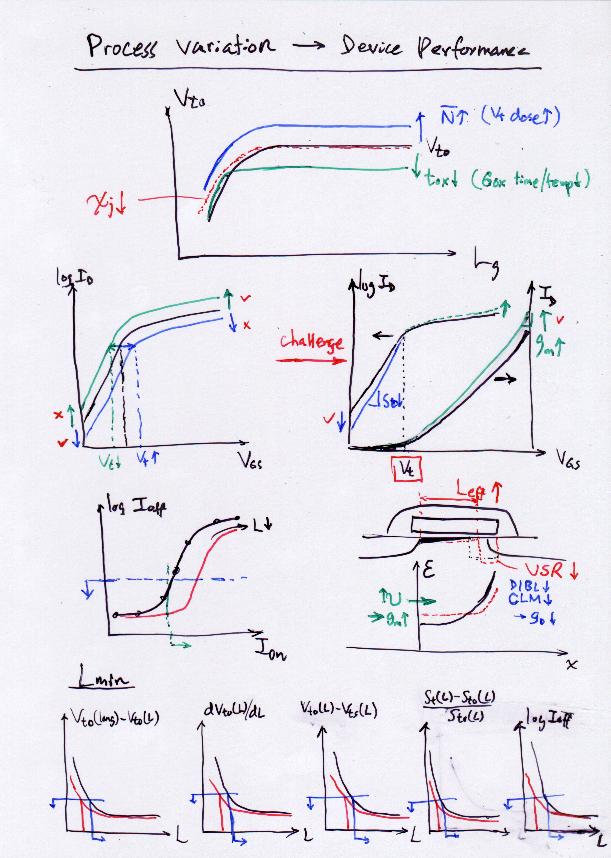 Process Variation → Device Performance
Vto
N̅↑ (Vt dose↑)
Vto
tox↓ (Gox time/temp↓)
χj↓
Lg
log ID
x
x
Vt↓
Vt↑
VGS
challenge
log ID
St↓
Vt
ID
gm↑
VGS
log Ioff
L↓
Ion
Leff ↑
VSR ↓
DIBL↓
CLM↓
→ go↓
ε
↑U
→ gm↑
x
Lmin
Vto(long)-Vto(L)
dVto(L)/dL
Vto(L)-Vts(L)
St(L)-Sto(L)
Sto(L)
log Ioff
L
L
L
L